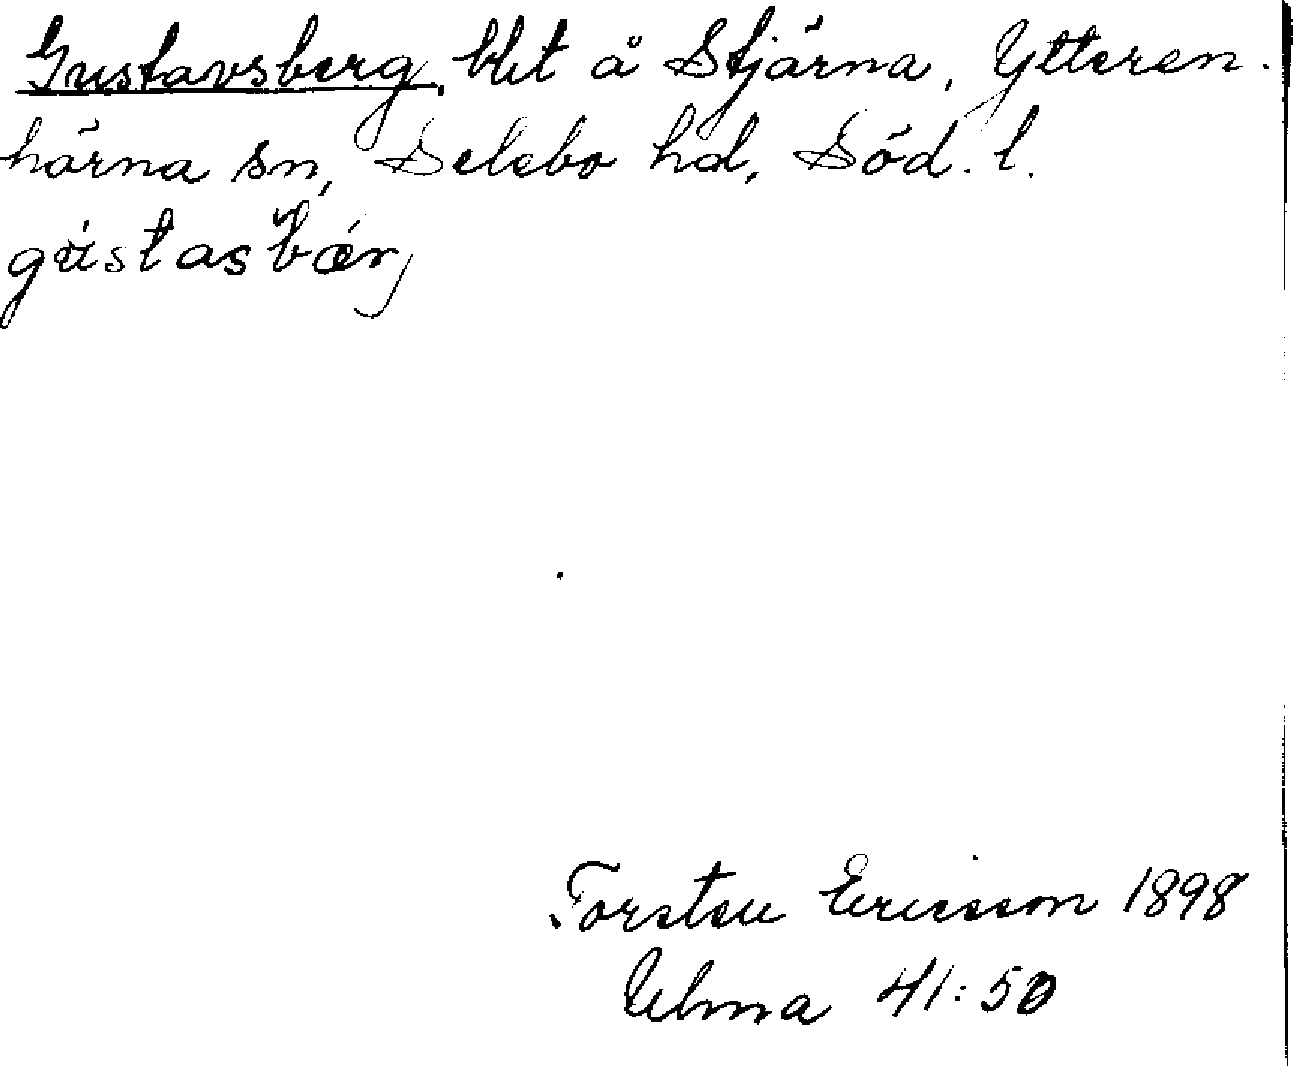 Gustavsberg, bht å Stjärna, Ytteren-
hörna sn, Selebo hd, Söd. l.
gústasbær,j
Torsten Ericsson 1898
Ulma 41:50